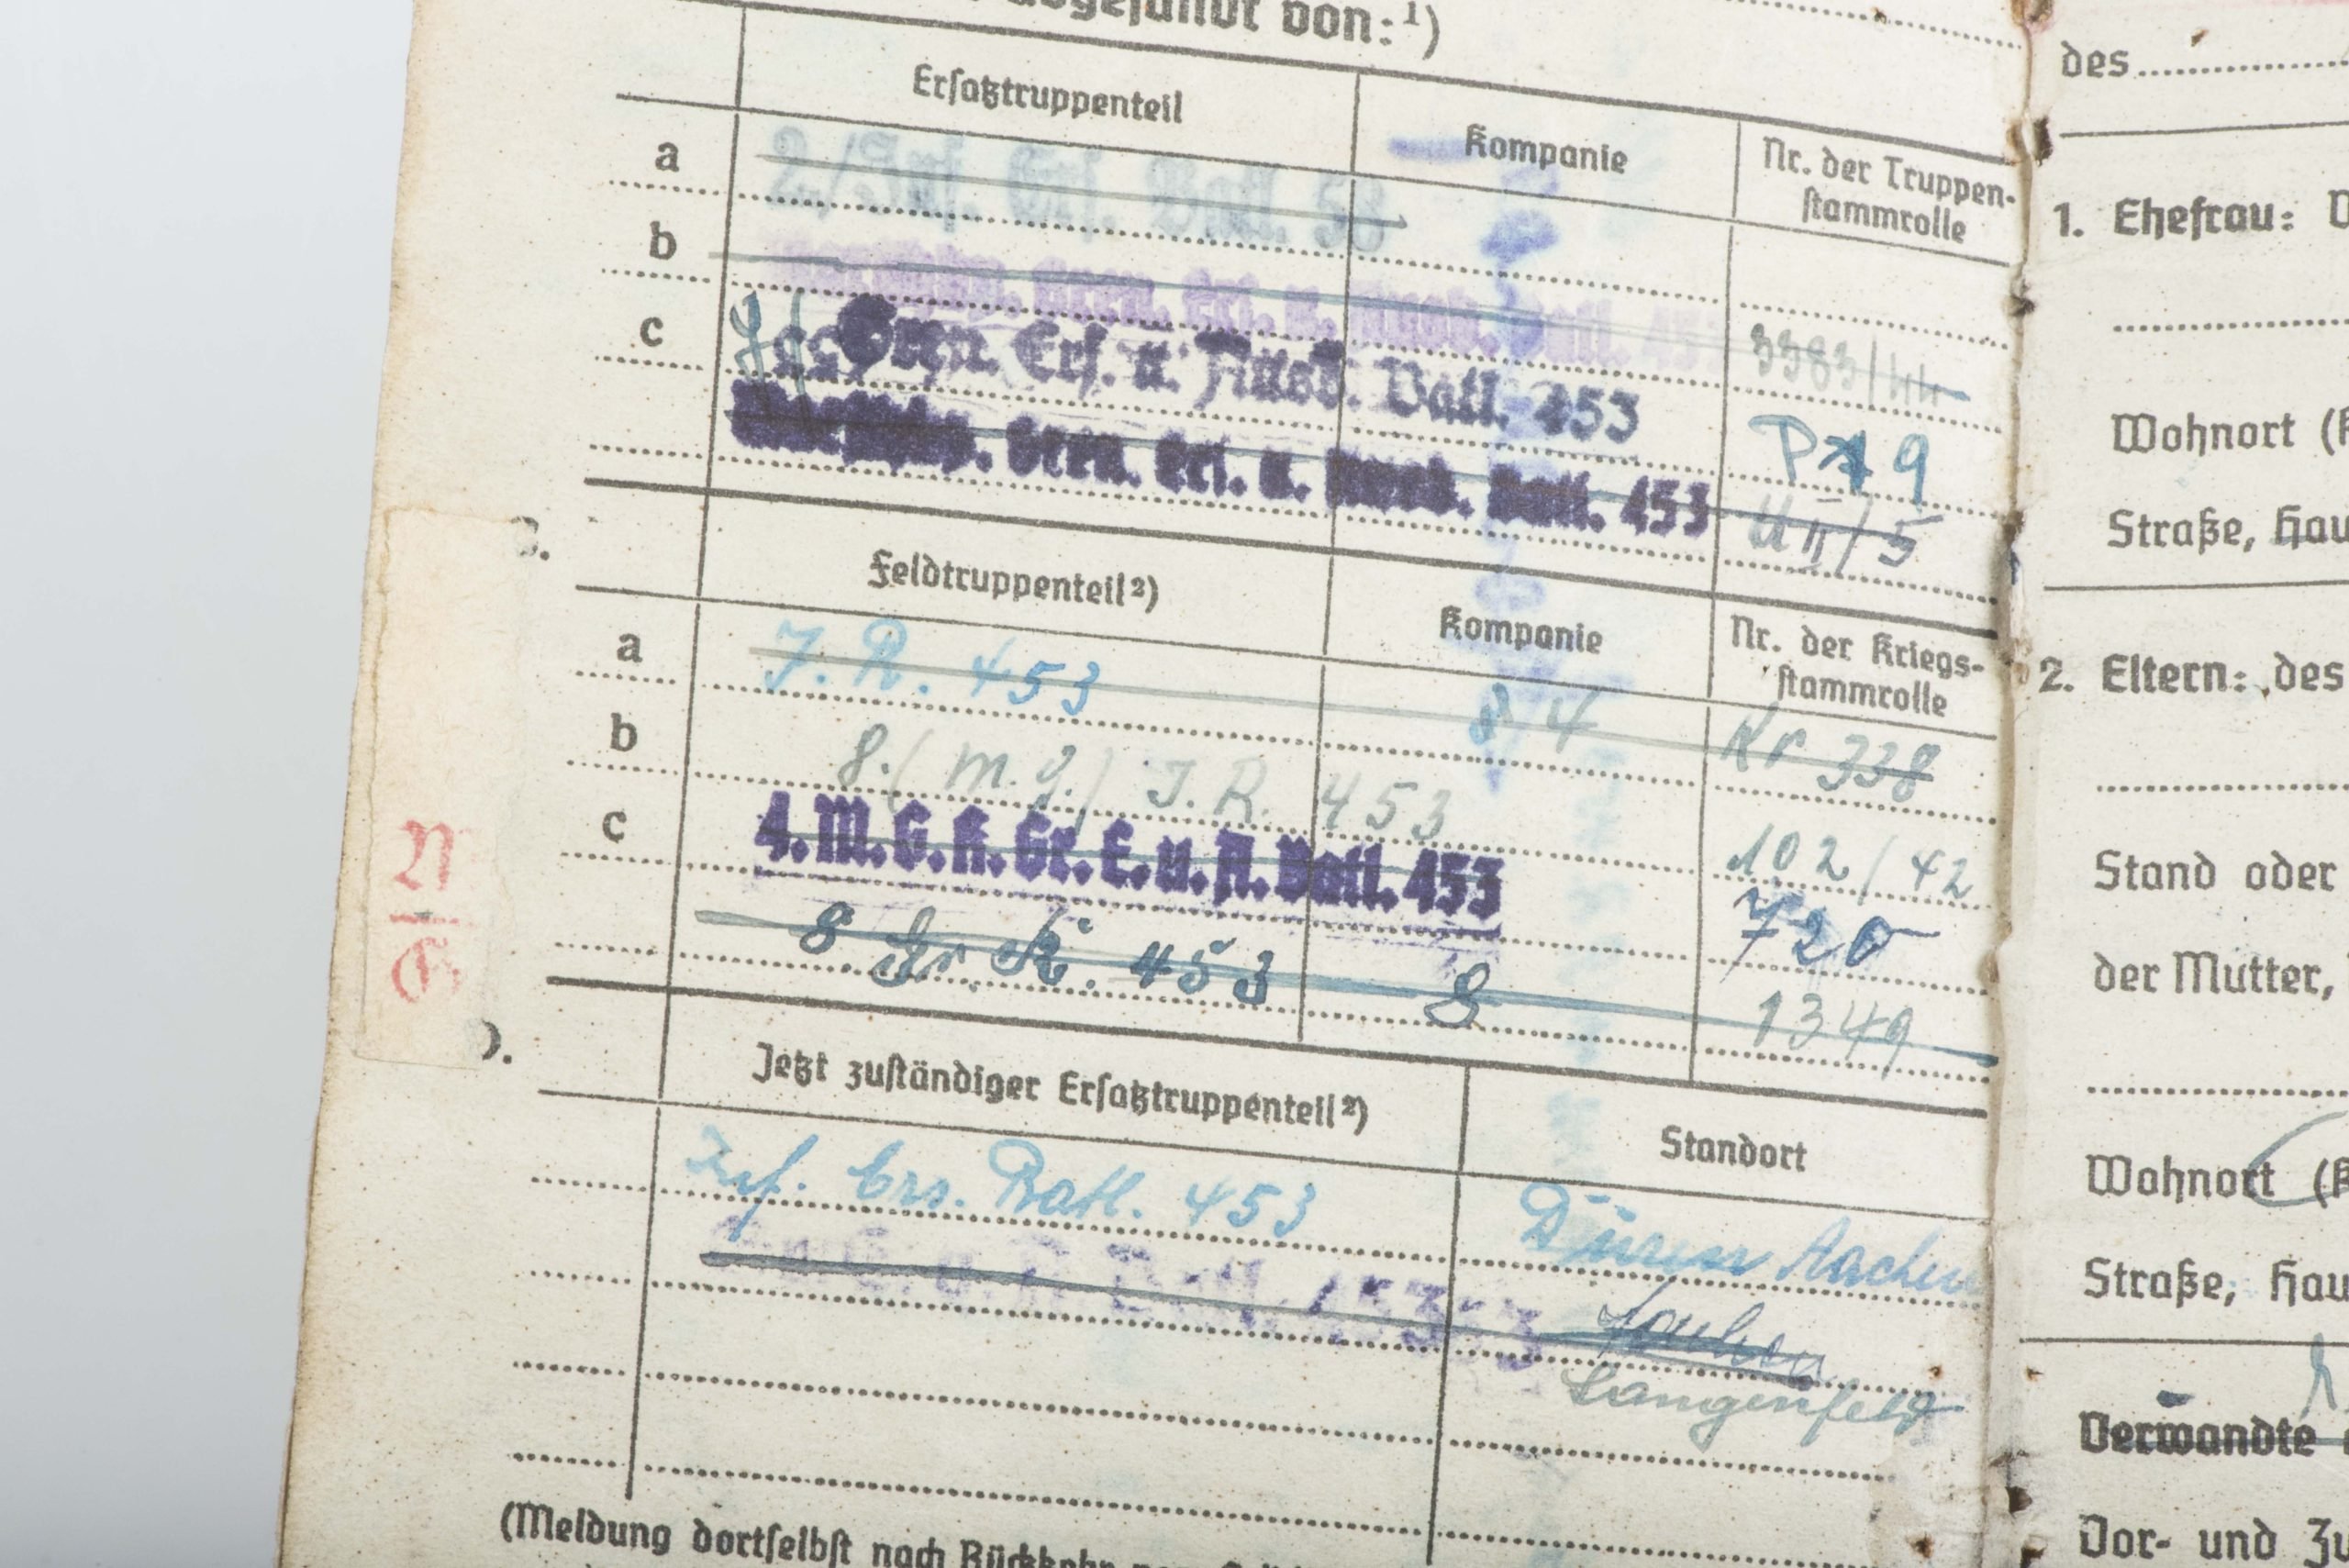 von:¹)
Ersatztruppenteil Kompanie Nr. der Truppen-
stammrolle
a 2./Inf. Ers. Batl. 58
b Gren. Ers. u. Ausb. Batl. 453 3383/44
c Gren. Ers. u. Ausb. Batl. 453 P 9
Marschkp. Gren. Ers. u. Ausb. Batl. 453 U II/5
C.
Feldtruppenteil²) Kompanie Nr. der Kriegs-
stammrolle
a J. R. 453 8 4 Kr 338
b 8. (M.G.) J. R. 453 102/42
c 4. M. G. K. Gr. E. u. A. Batl. 453 720
8 Gr R. 453 8 1349
N
E
D.
Jetzt zuständiger Ersatztruppenteil²) Standort
Inf. Ers. Batl. 453 Düren Aachen
E. u. A. Batl. 453
Langenfeld
(Meldung dortselbst nach Rückkehr
des
1. Ehefrau:
Wohnort
Straße, Hau
2. Eltern: des
Stand oder
der Mutter,
Wohnort
Straße, Hau
Verwandte
Vor- und Zu